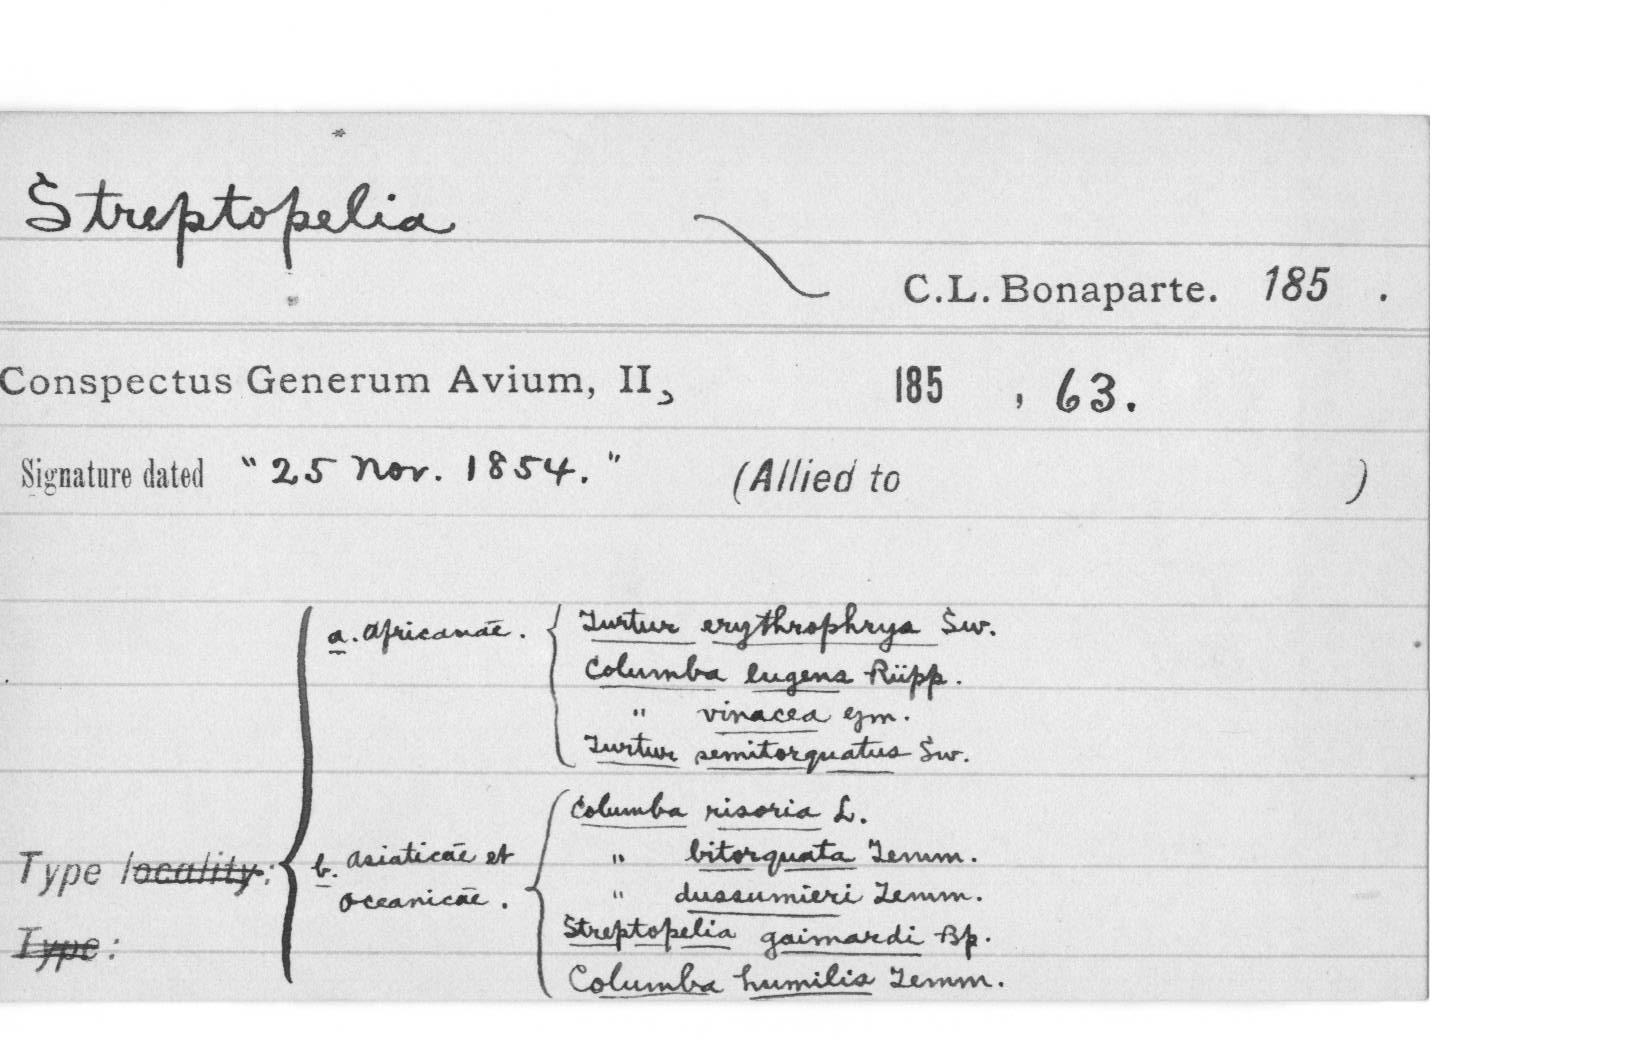 Streptopelia
C.L. Bonaparte. 185 .
Conspectus Generum Avium, II, 185 , 63.
Signature dated "25 Nov. 1854." (Allied to )
a. Africanae. Turtur erythrophrys Sw.
Columba lugens Rüpp.
" vinacea Gm.
Turtur semitorquatus Sw.
Columba risoria L.
Type locality: b. Asiaticae et " bitorquata Temm.
Oceanicae. " dussumieri Temm.
Type: Streptopelia gaimardi Bp.
Columba humilis Temm.